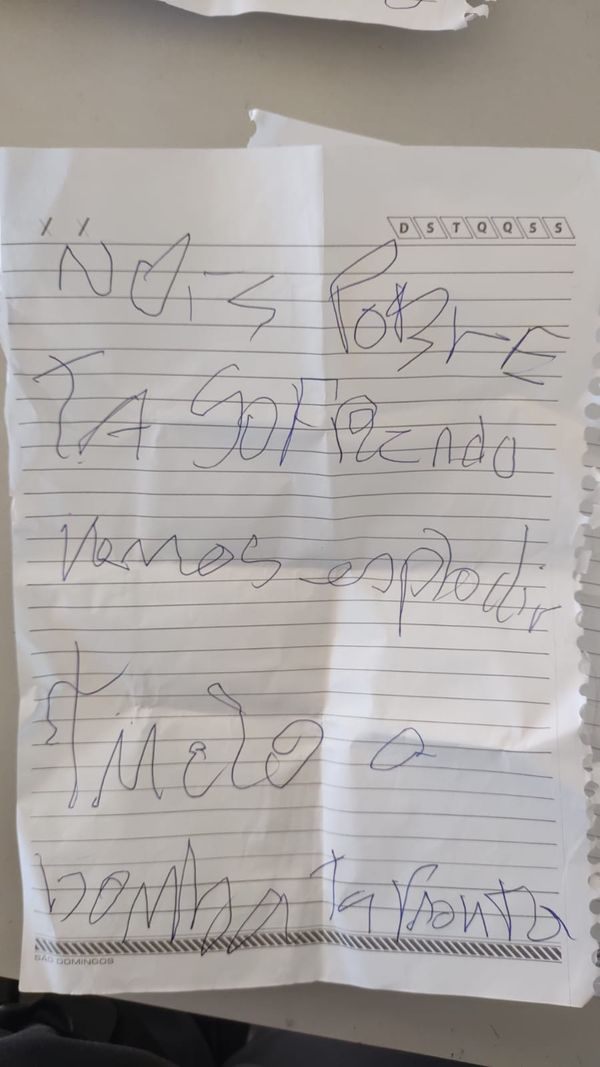 D S T Q Q S S
NOIS POBRE
TA SOFRENDO
Vamos esplodir
Tudo a
bomba ta Pronta
SÃO DOMINGOS